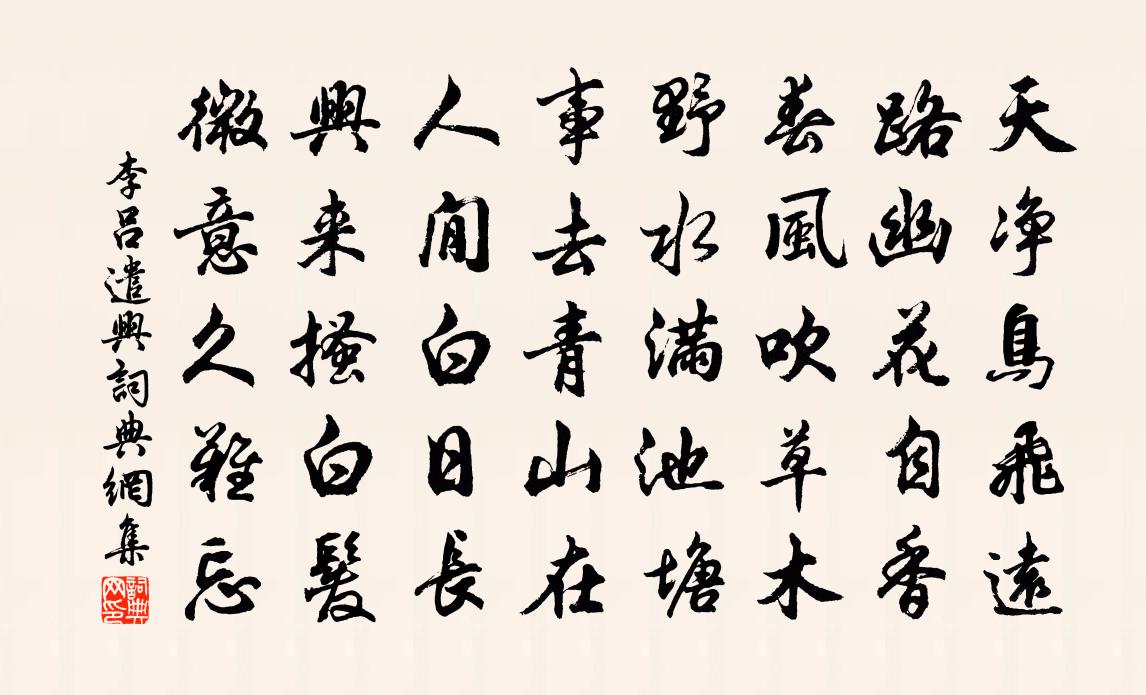 天净鳥飛遠
路幽花自香
春風吹草木
野水滿池塘
事去青山在
人閒白日長
興来搔白髮
微意久難忘
李吕遣興詞典網集
詞典网印